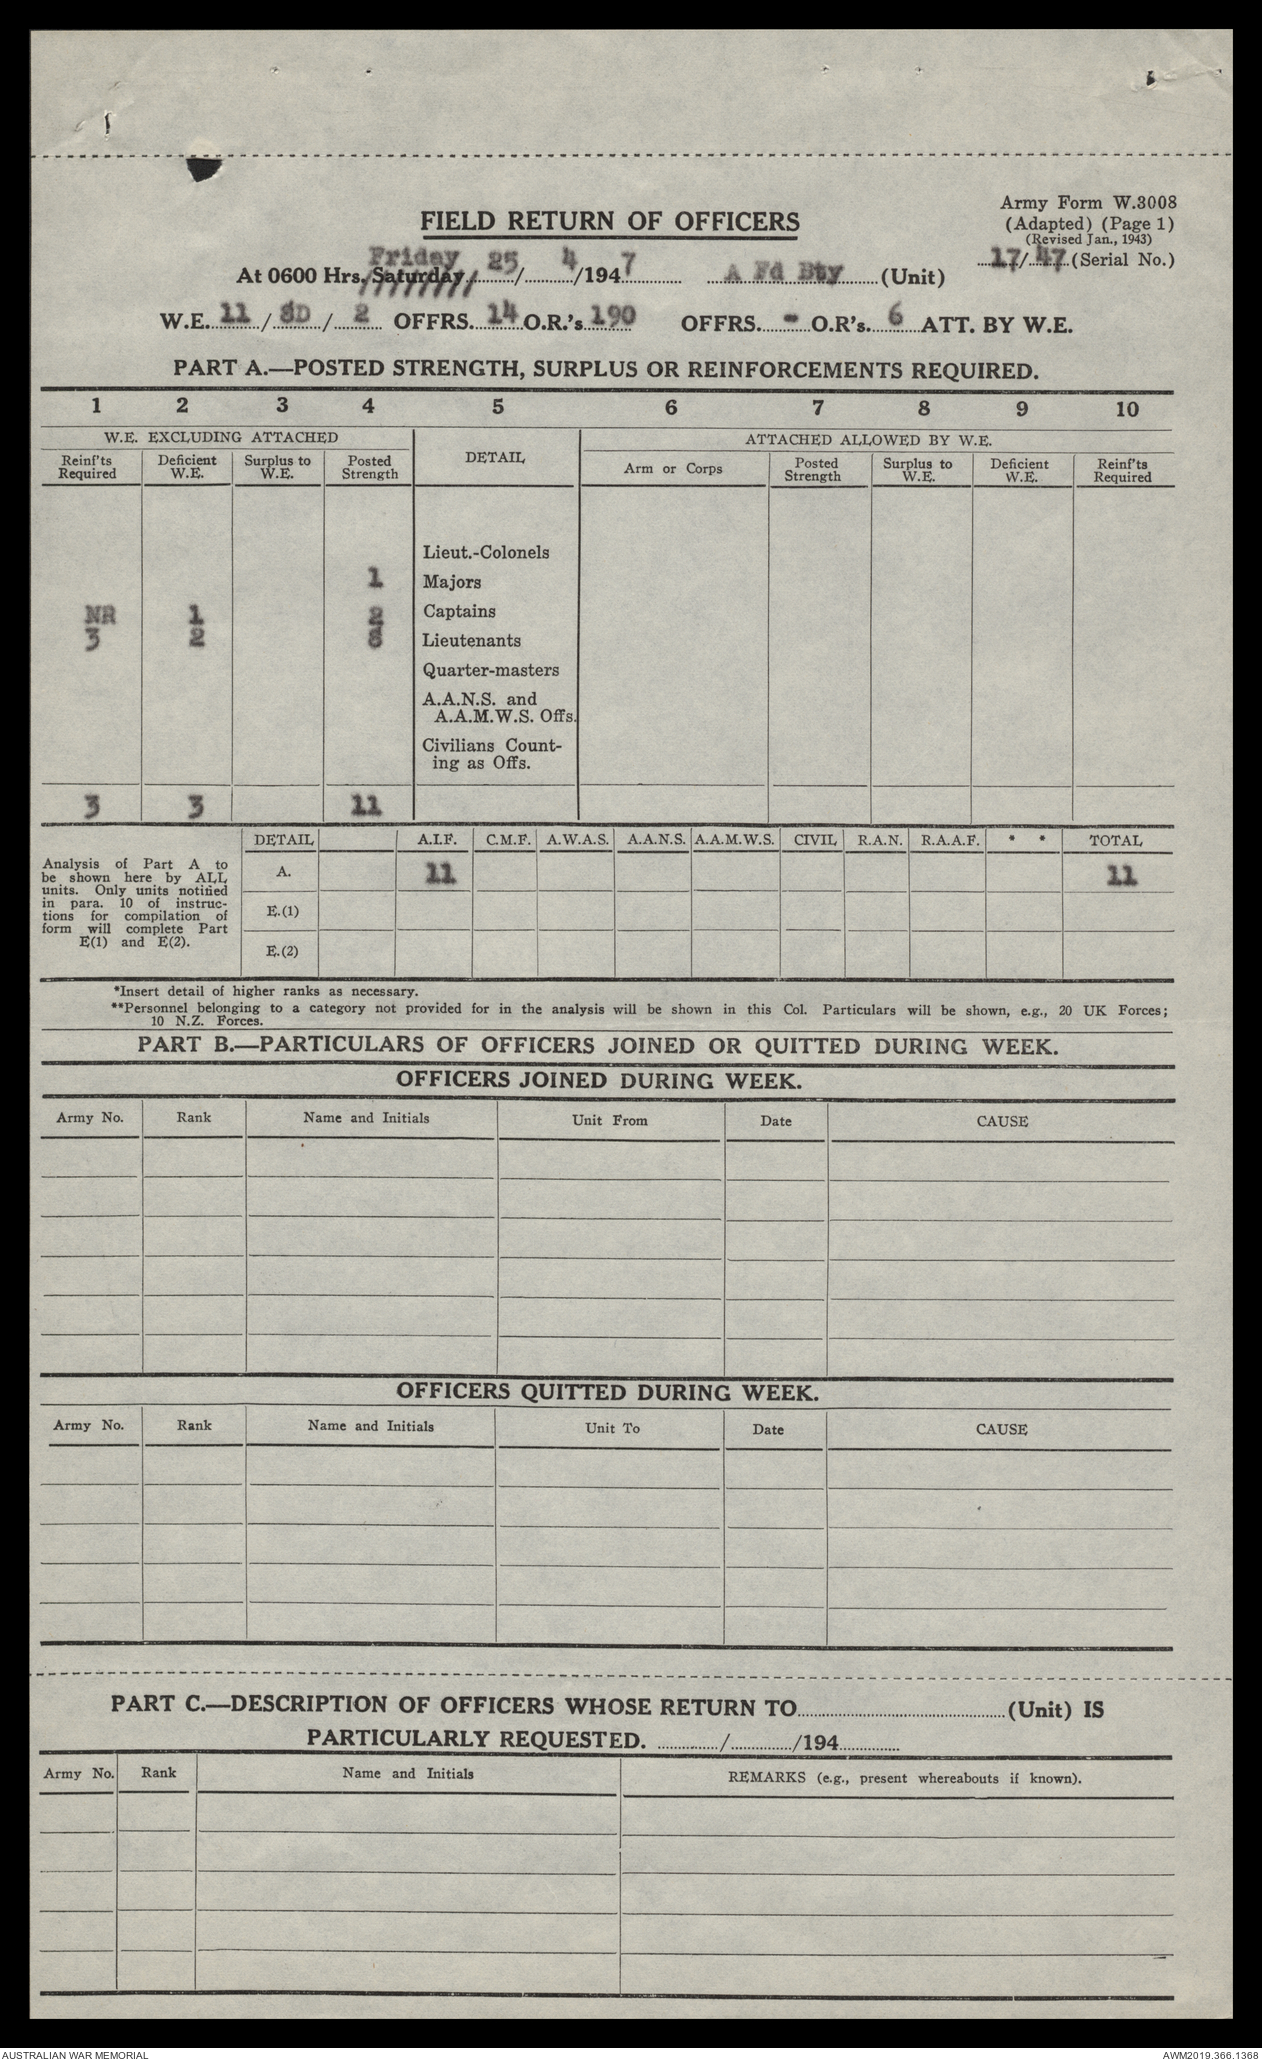 Army Form W.3008
FIELD RETURN OF OFFICERS
(Adapted) (Page 1)
(Revised Jan., 1943)
17/47 (Serial No.)
Friday
At 0600 Hrs. Saturday 25/4/1947 A Fd Bty (Unit)
W.E. 11/8D/2 OFFRS. 14 O.R.'s 190 OFFRS. - O.R's. 6 ATT. BY W.E.
PART A.—POSTED STRENGTH, SURPLUS OR REINFORCEMENTS REQUIRED.
1 2 3 4 5 6 7 8 9 10
W.E. EXCLUDING ATTACHED DETAIL ATTACHED ALLOWED BY W.E.
Reinf'ts Required Deficient W.E. Surplus to W.E. Posted Strength Arm or Corps Posted Strength Surplus to W.E. Deficient W.E. Reinf'ts Required
Lieut.-Colonels
1 Majors
NR 1 2 Captains
3 2 8 Lieutenants
Quarter-masters
A.A.N.S. and
A.A.M.W.S. Offs.
Civilians Count-
ing as Offs.
3 3 11
DETAIL A.I.F. C.M.F. A.W.A.S. A.A.N.S. A.A.M.W.S. CIVIL R.A.N. R.A.A.F. * * TOTAL
Analysis of Part A to
be shown here by ALL
units. Only units notified
in para. 10 of instruc-
tions for compilation of
form will complete Part
E(1) and E(2).
A. 11 11
E.(1)
E.(2)
*Insert detail of higher ranks as necessary.
**Personnel belonging to a category not provided for in the analysis will be shown in this Col. Particulars will be shown, e.g., 20 UK Forces;
10 N.Z. Forces.
PART B.—PARTICULARS OF OFFICERS JOINED OR QUITTED DURING WEEK.
OFFICERS JOINED DURING WEEK.
Army No. Rank Name and Initials Unit From Date CAUSE
OFFICERS QUITTED DURING WEEK.
Army No. Rank Name and Initials Unit To Date CAUSE
PART C.—DESCRIPTION OF OFFICERS WHOSE RETURN TO (Unit) IS
PARTICULARLY REQUESTED. / /194
Army No. Rank Name and Initials REMARKS (e.g., present whereabouts if known).
AUSTRALIAN WAR MEMORIAL AWM2019.366.1368